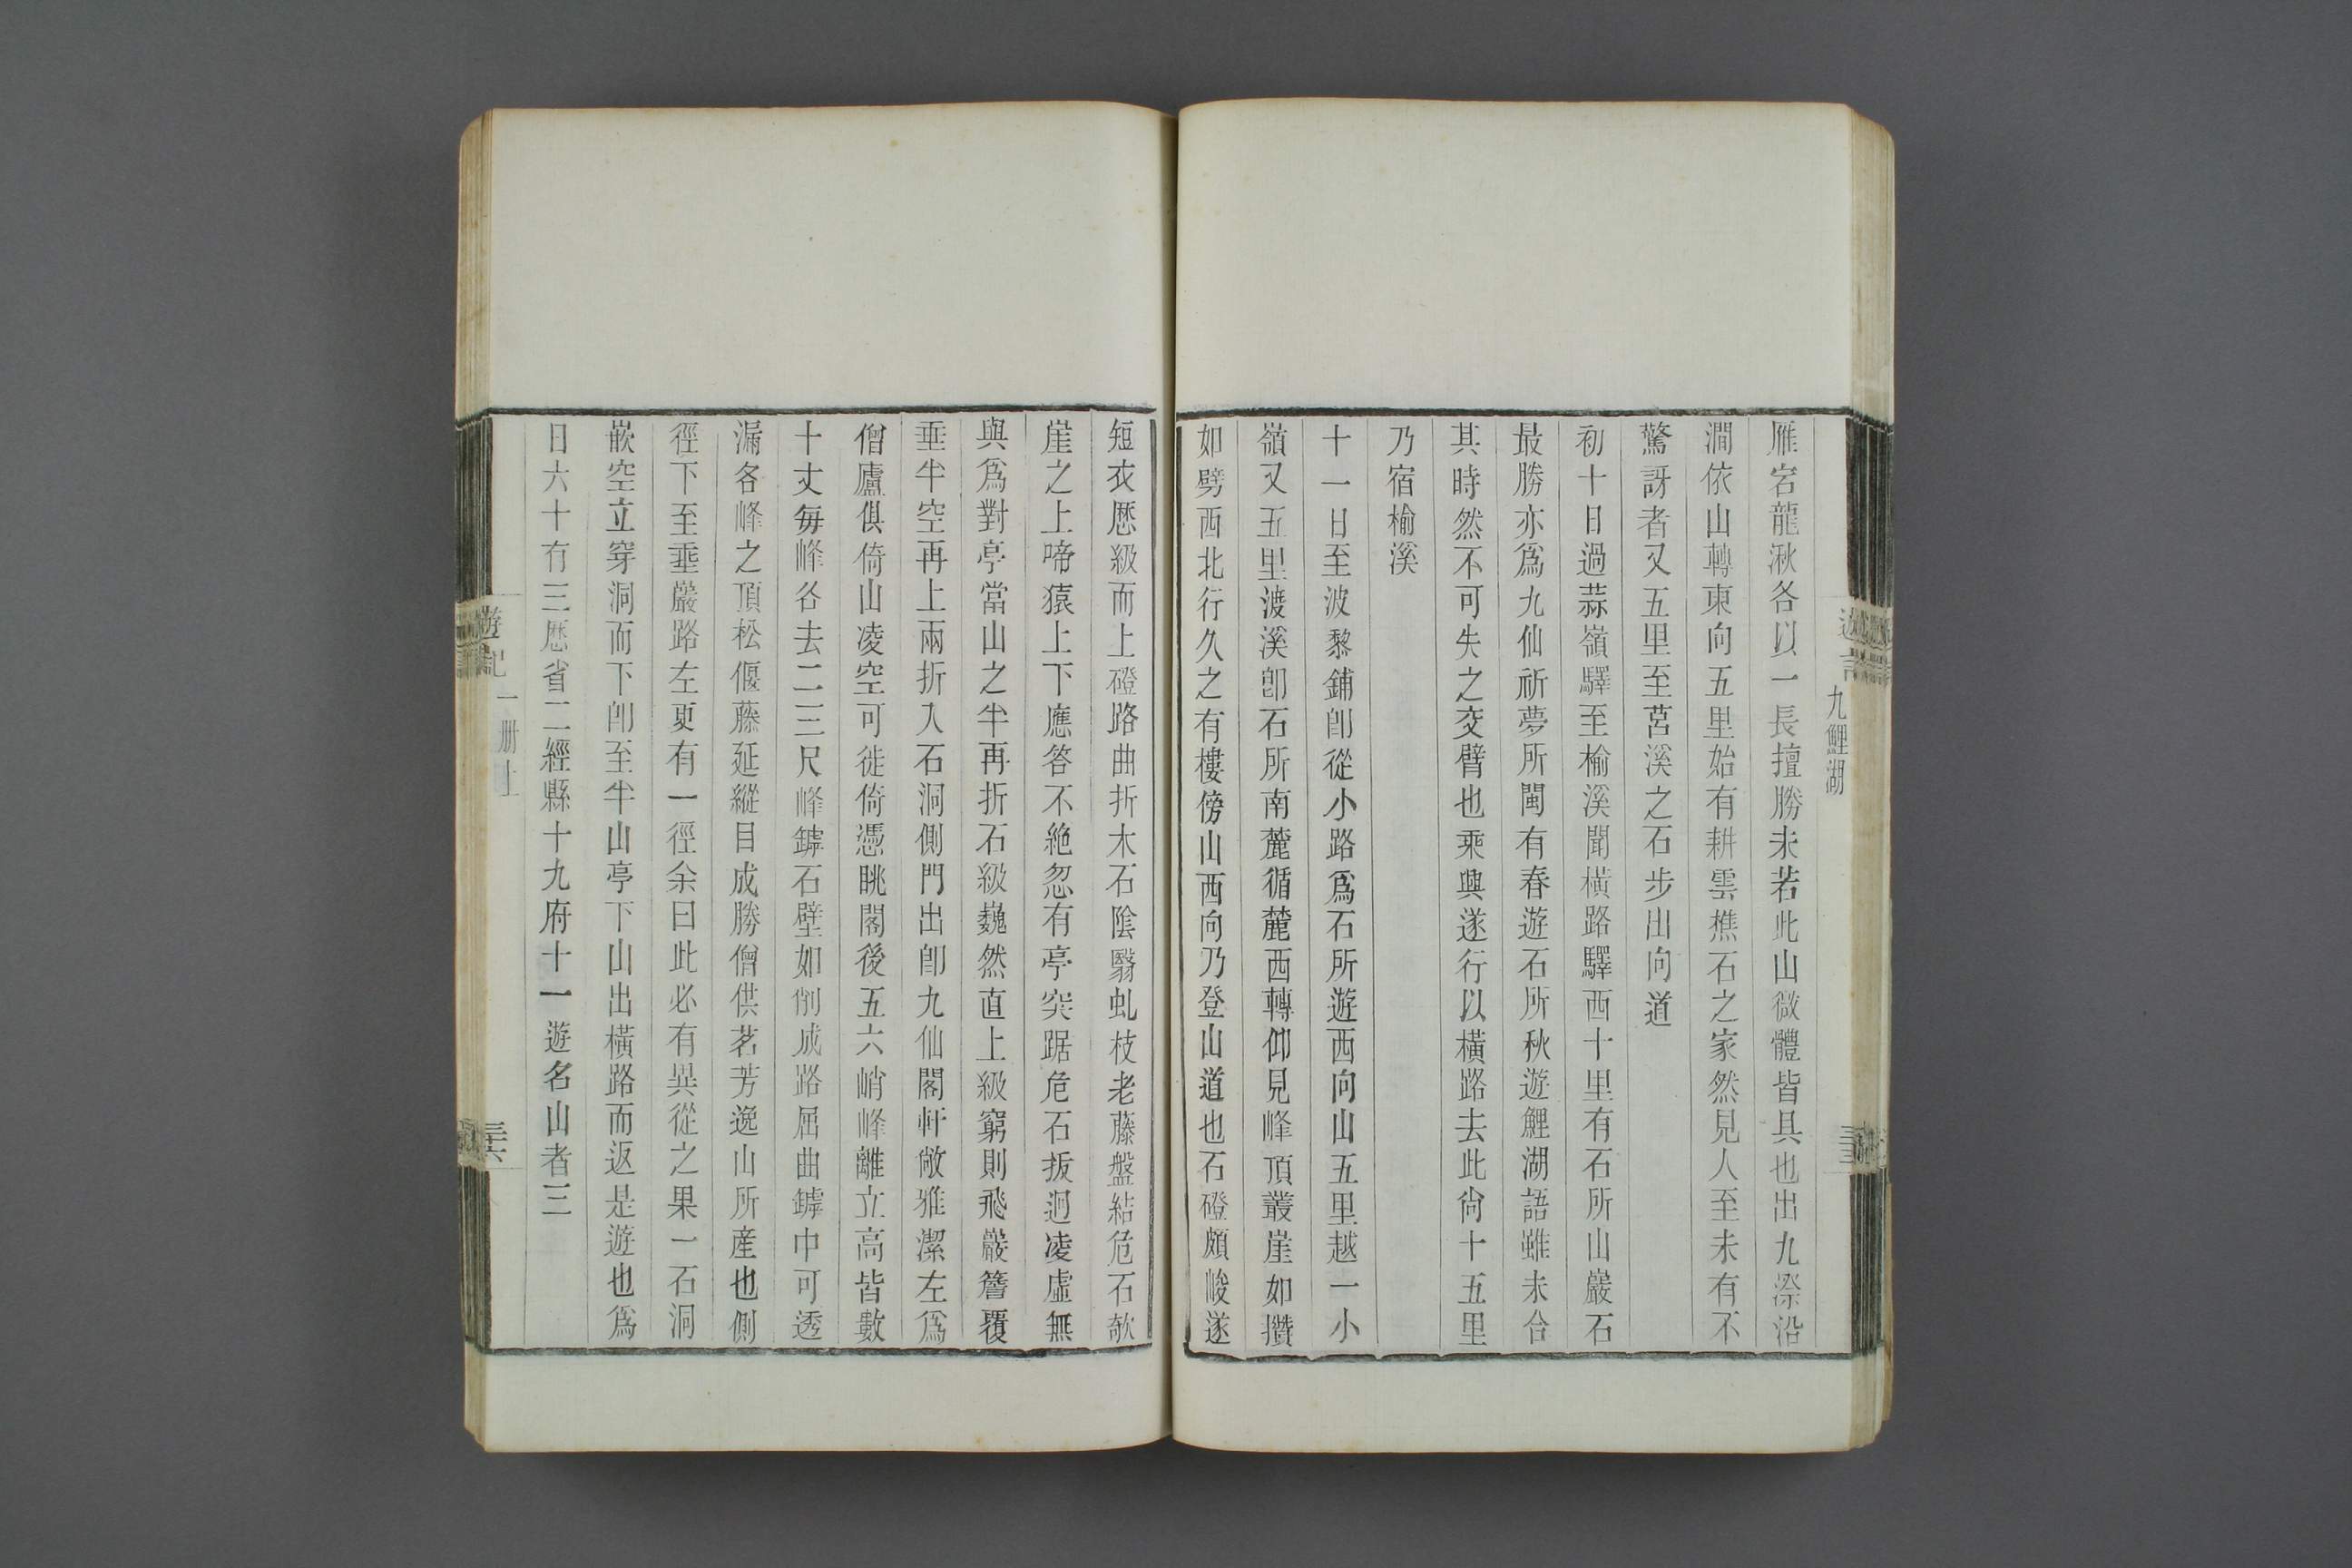 九鯉湖
雁宕龍湫各以一長擅勝未若此山微體皆具也出九漈沿
澗依山轉東向五里始有耕雲樵石之家然見人至未有不
驚訝者又五里至莒溪之石步出向道
初十日過蒜嶺驛至榆溪聞橫路驛西十里有石所山巖石
最勝亦爲九仙祈夢所閩有春遊石所秋遊鯉湖語雖未合
其時然不可失之交臂也乘興遂行以橫路去此尙十五里
乃宿榆溪
十一日至波黎鋪卽從小路爲石所遊西向山五里越一小
嶺又五里渡溪卽石所南麓循麓西轉仰見峰頂叢崖如攢
如劈西北行久之有樓傍山西向乃登山道也石磴頗峻遂
短衣歷級而上磴路曲折木石陰翳虬枝老藤盤結危石欹
崖之上啼猿上下應答不絶忽有亭突踞危石拔迥凌虛無
與爲對亭當山之半再折石級巍然直上級窮則飛巖簷覆
垂半空再上兩折入石洞側門出卽九仙閣軒敞雅潔左爲
僧廬俱倚山凌空可徙倚憑眺閣後五六峭峰離立高皆數
十丈每峰各去二三尺峰罅石壁如削成路屈曲罅中可透
漏各峰之頂松偃藤延縱目成勝僧供茗芳逸山所産也側
徑下至垂巖路左更有一徑余曰此必有異從之果一石洞
嵌空立穿洞而下卽至半山亭下山出橫路而返是遊也爲
日六十有三歷省二經縣十九府十一遊名山者三
遊記
一册上
三十六